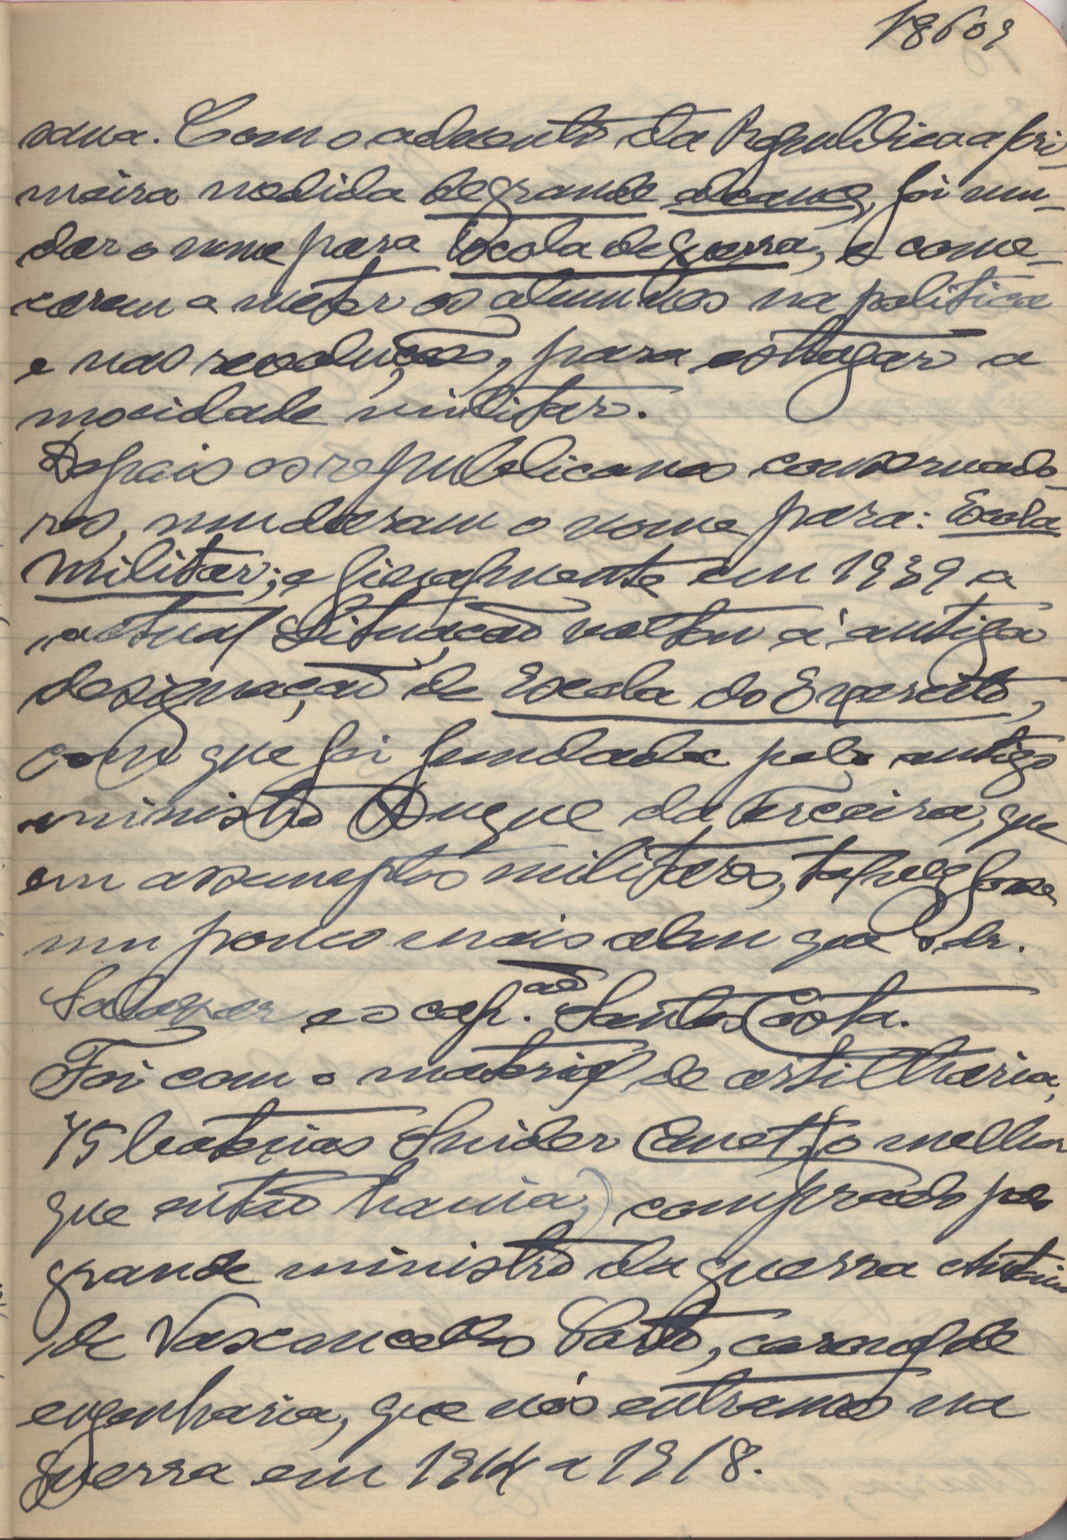 18609
sua. Com o advento da Republica a pri-
meira medida de grande alcance, foi mu-
dar o nome para Escola de Guerra, e come-
çaram a meter os alumnos na politica
e nas revoluções, para estragar a
mocidade militar.
Depois os republicanos conservado-
res, mudaram o nome para: Escola
Militar; e finalmente em 1939 a
actual Situação voltou á antiga
designação de Escola do Exercito,
com que foi fundada pelo antigo
ministro Duque da Terceira, que
em assumptos militares, talvez fosse
um pouco mais alem que o dr.
Salazar e o cap.ão Santos Costa.
Foi com o material de artilharia,
75 baterias Snider Canet (o melhor
que então havia,) comprado pelo
grande ministro da guerra Antonio
de Vasconcellos Porto, coronel de
engenharia, que nós entramos na
Guerra em 1914 a 1918.